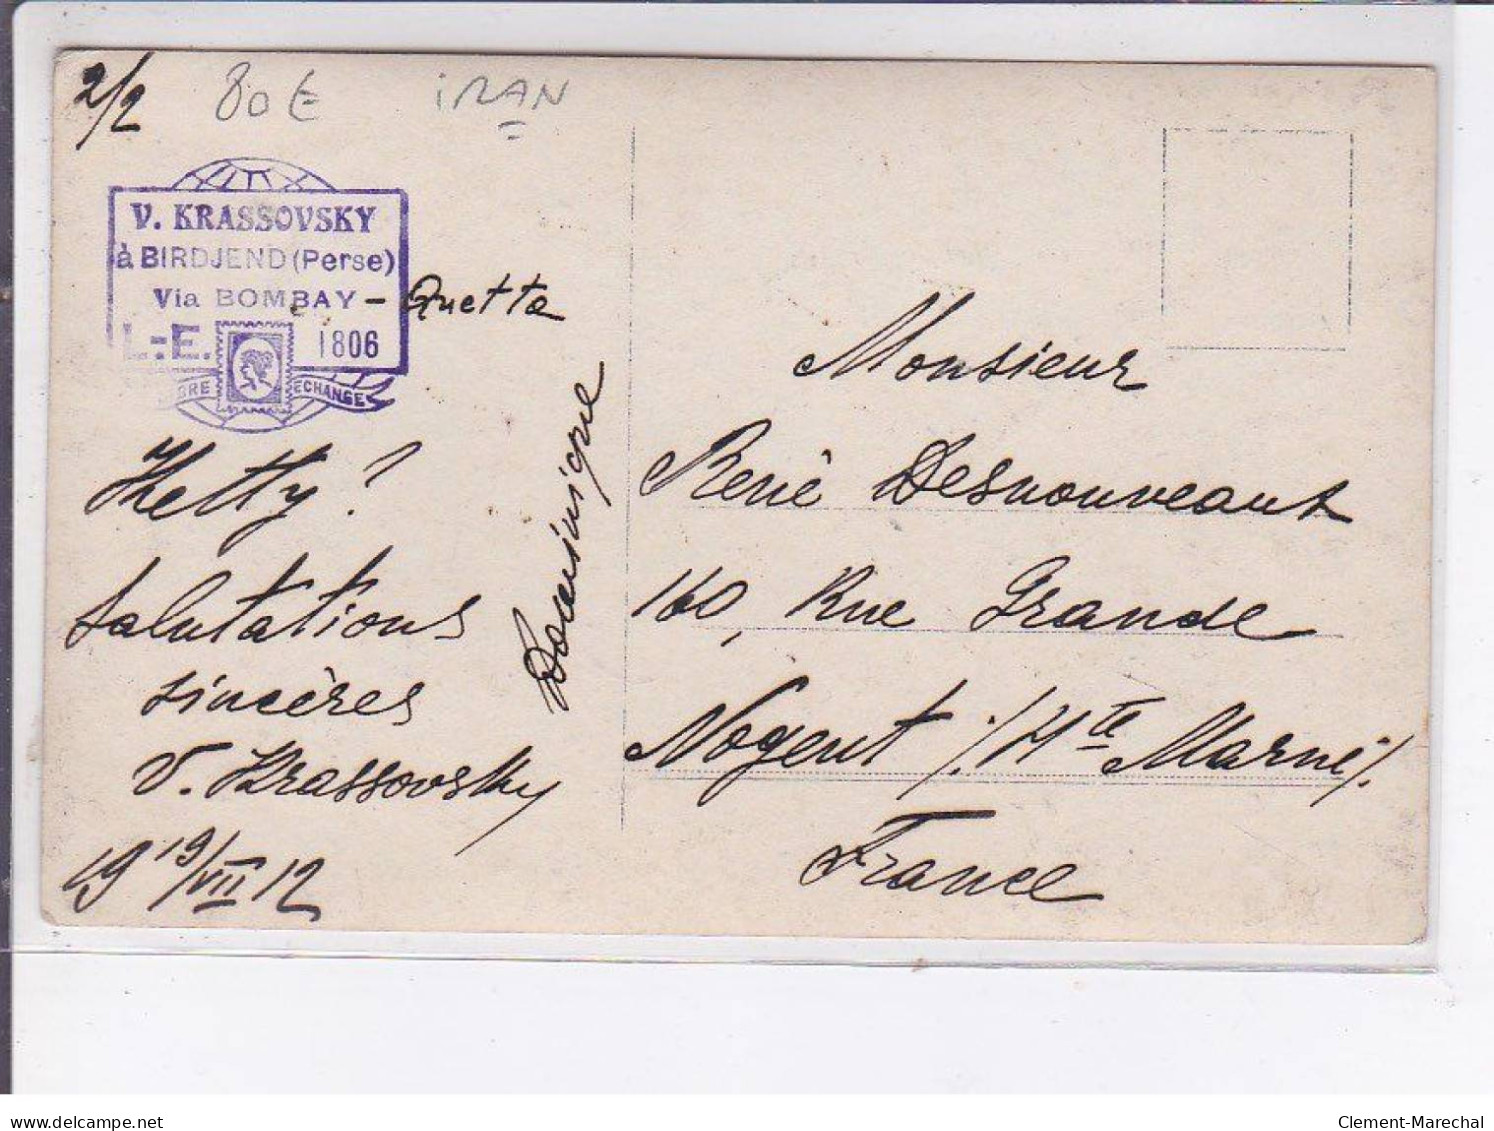 2/2
80€
iRAN
V. KRASSOVSKY
à BIRDJEND (Perse)
Via BOMBAY - Quetta
L.-E. 1806
BRE ECHANGE
Hetty?
Salutations
sincères
V. Krassovsky
19 19/VII 12
Dominique
Monsieur
René Desnouveaux
160, Rue Grande
Nogent /. Hte Marne/.
France
delcampe.net
Clement-Marechal